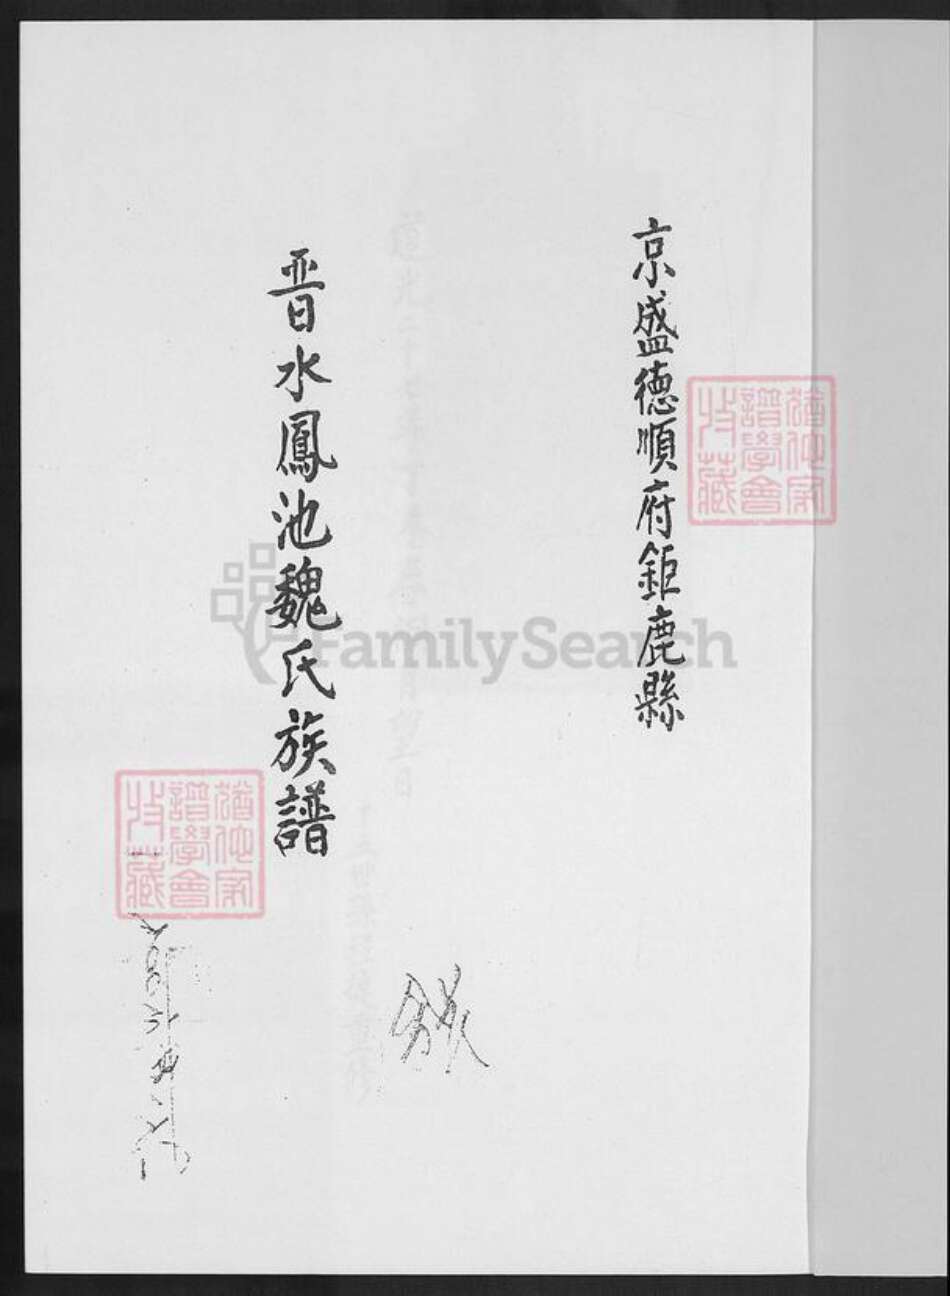 京盛德順府鉅鹿縣
晋水鳳池魏氏族譜
猶他家譜學會收藏
猶他家譜學會收藏
FamilySearch